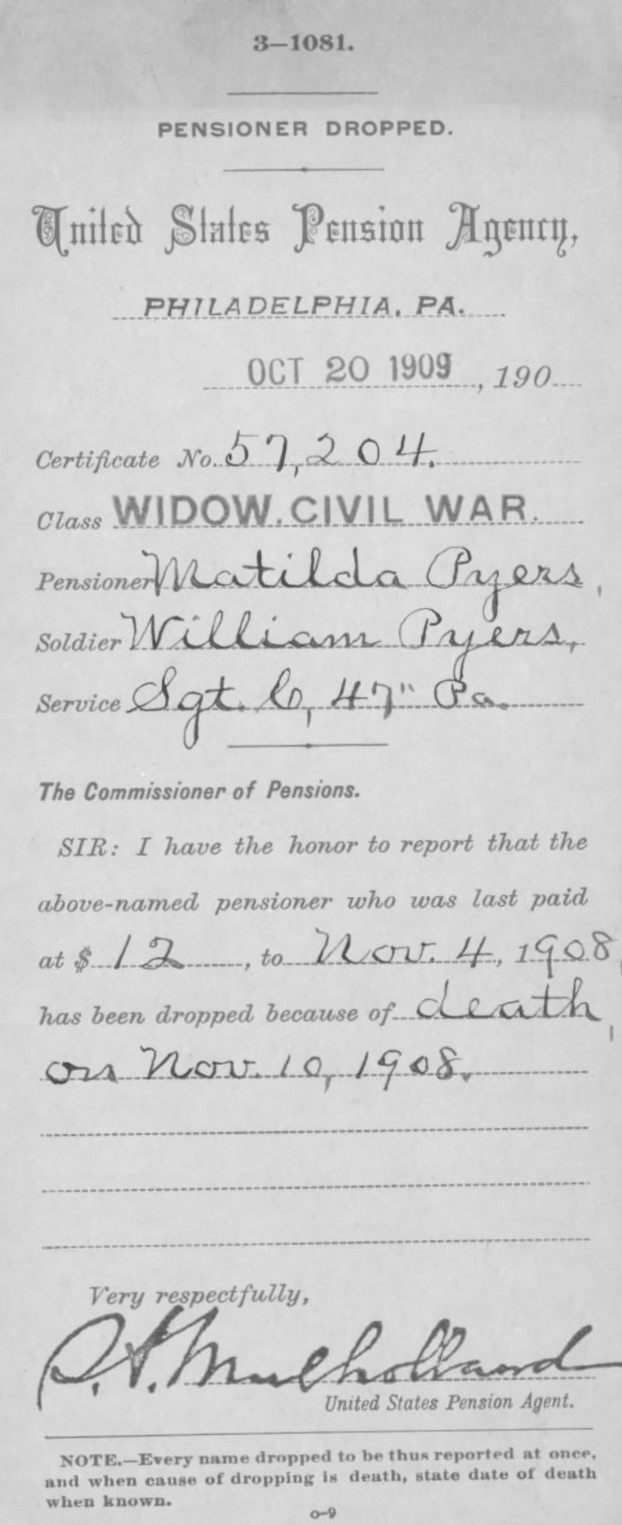 3—1081.
PENSIONER DROPPED.
United States Pension Agency,
PHILADELPHIA, PA.
OCT 20 1909, 190
Certificate No. 57,204.
Class WIDOW. CIVIL WAR.
Pensioner Matilda Pyers,
Soldier William Pyers,
Service Sgt. C, 47" Pa.
The Commissioner of Pensions.
SIR: I have the honor to report that the
above-named pensioner who was last paid
at $ 12, to Nov. 4, 1908
has been dropped because of death,
on Nov. 10, 1908.
Very respectfully,
S.A. Mulholland
United States Pension Agent.
NOTE.—Every name dropped to be thus reported at once,
and when cause of dropping is death, state date of death
when known.
o-9